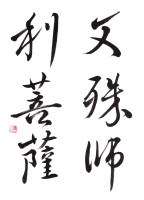 文殊师
利菩薩